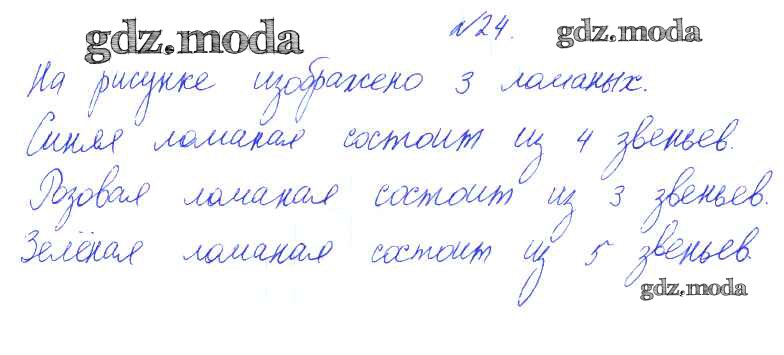 №24.
gdz.moda gdz.moda
На рисунке изображено 3 ломаных.
Синяя ломаная состоит из 4 звеньев.
Розовая ломаная состоит из 3 звеньев.
Зелёная ломаная состоит из 5 звеньев.
gdz.moda